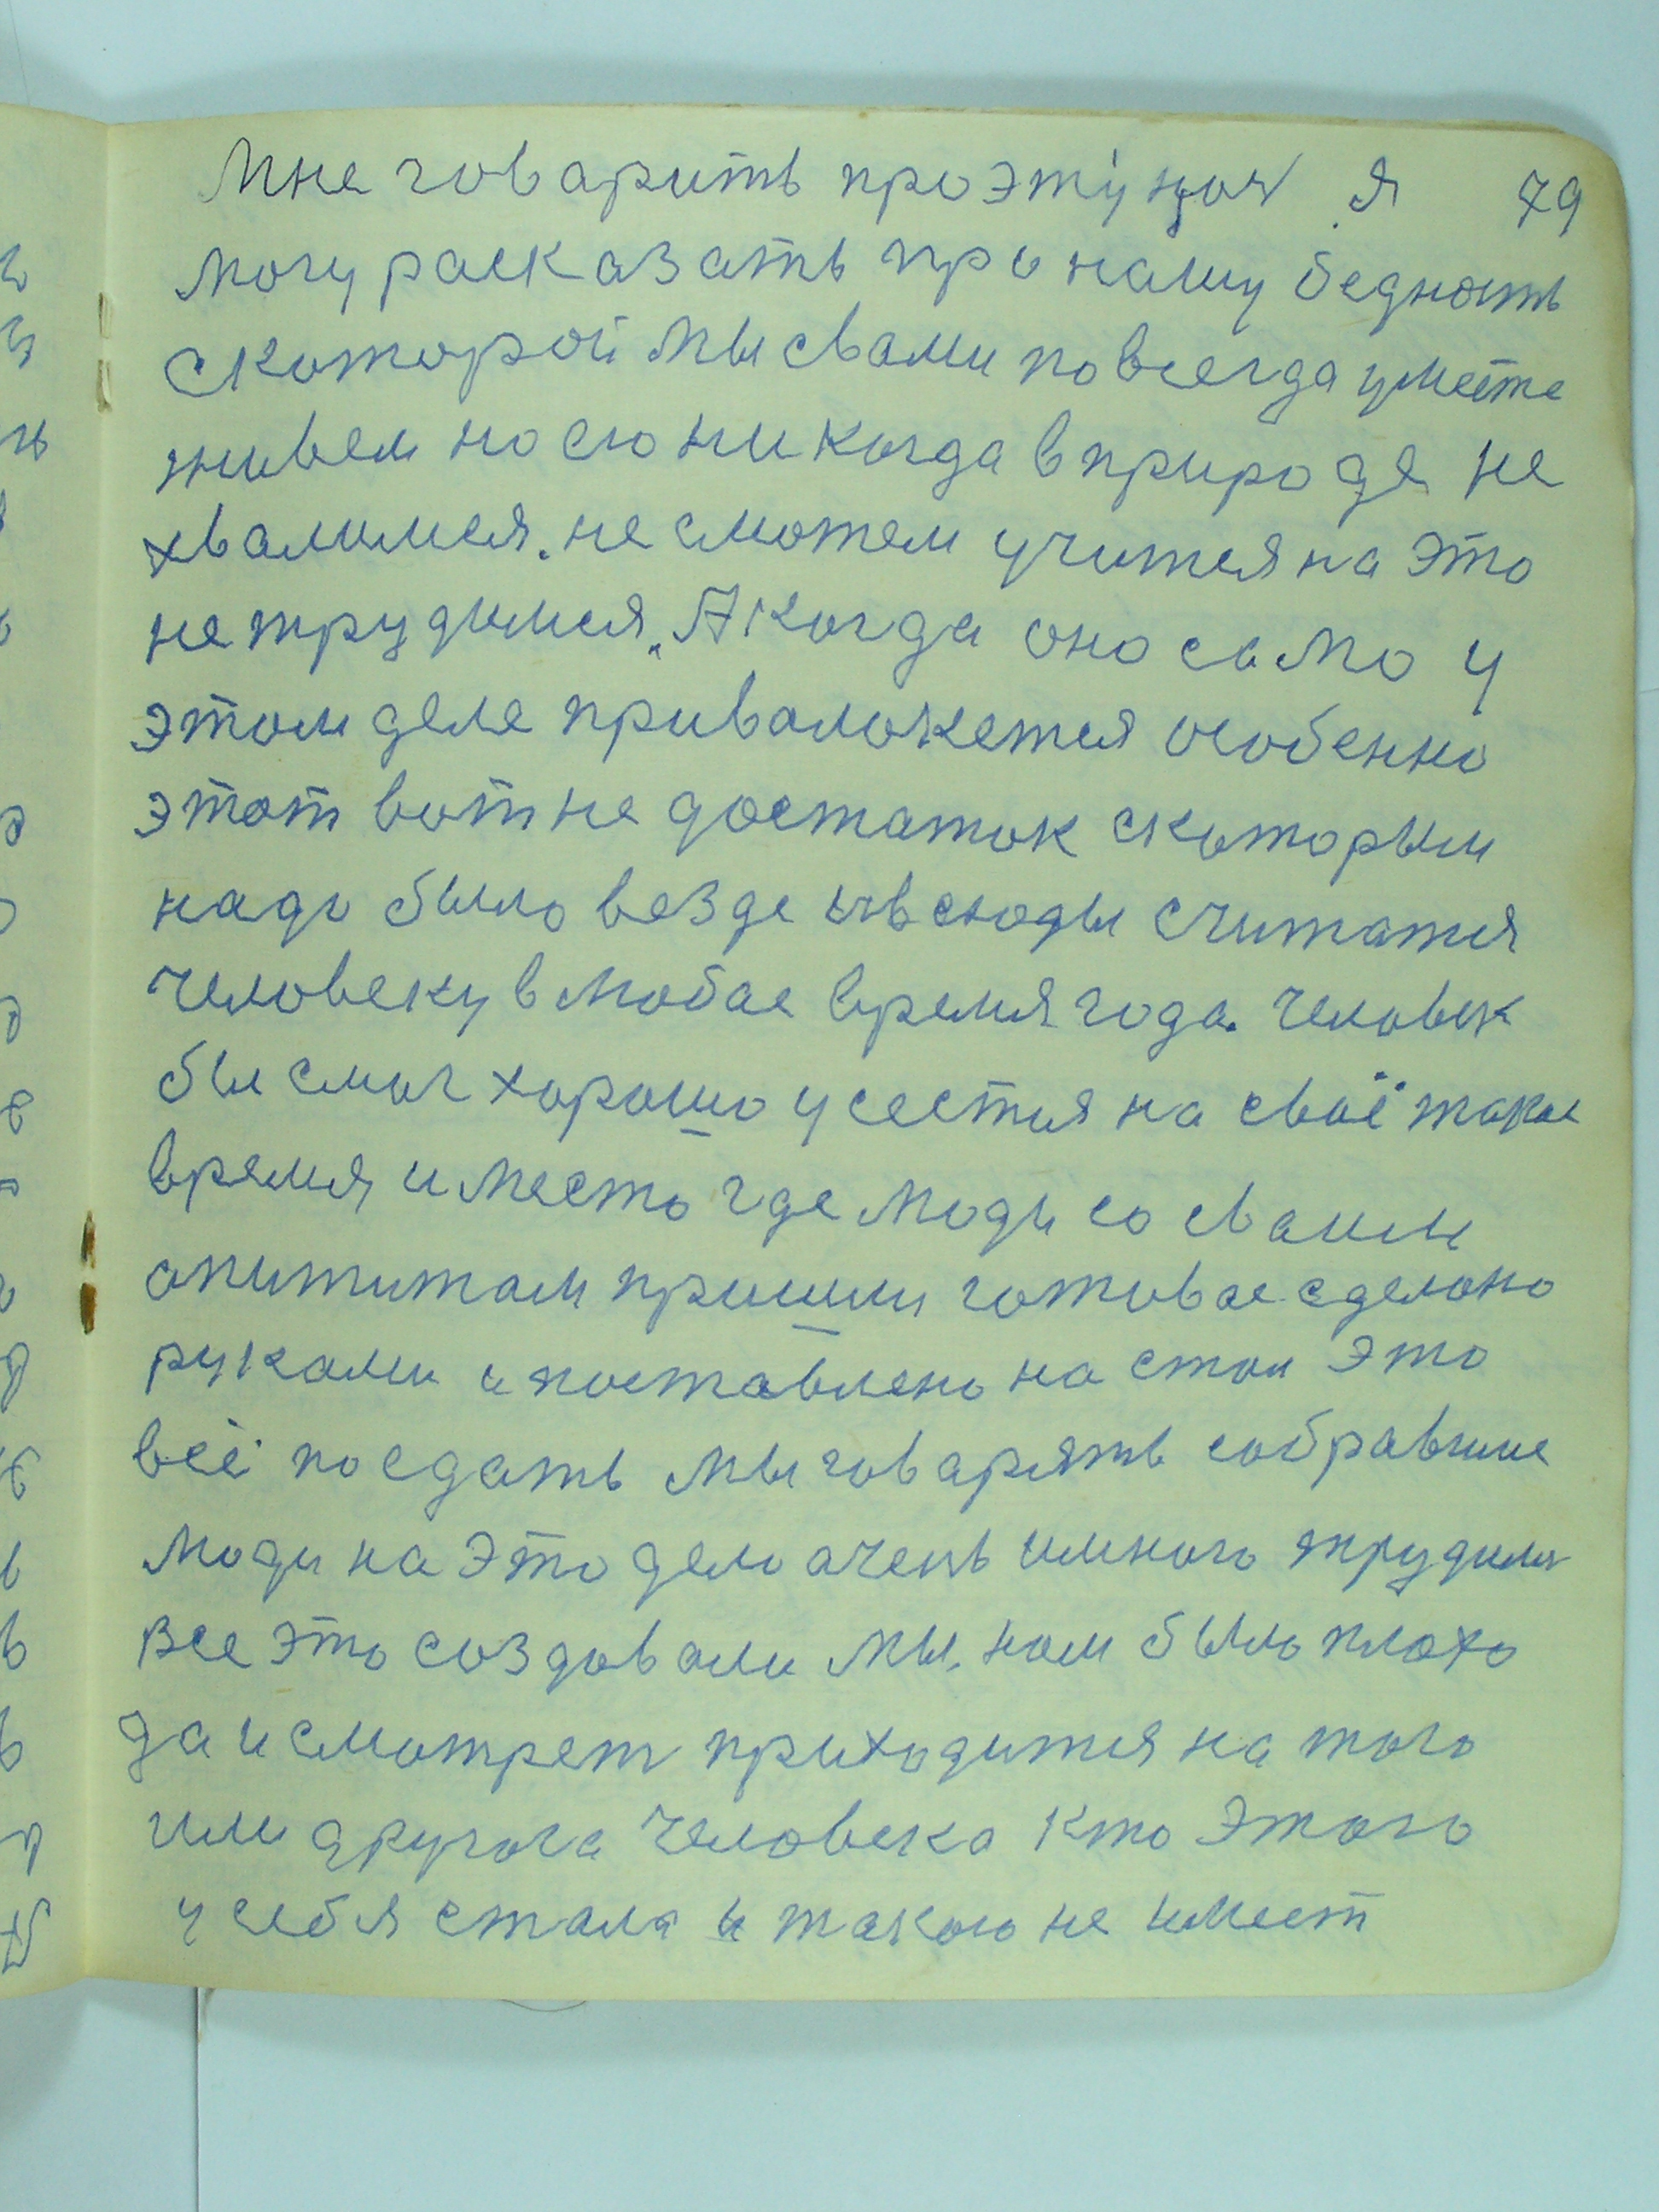 Мне говарить про эту ноч Я 79
могу расказать про нашу бедность
скоторой мы свами повсегда уместе
живем но ею никогда вприроде не
хвалимся. не сможем учится на это
не трудимся. А когда оно само у
этом деле приваложется особенно
этот вот не достаток скоторым
надо было везде ивсюды считатся
человеку в любое время года. человек
бы смог хорошо усестся на своё такое
время и место где люди со своим
апититам пришли готовое сделано
руками и поставлено на стол это
всё поедать мы говарять собравшие
люди на это дело очень имного трудились
все это создовали мы. нам было плохо
да и смотреть приходится на того
или другога человека кто этого
у себя стала и такого не имеет